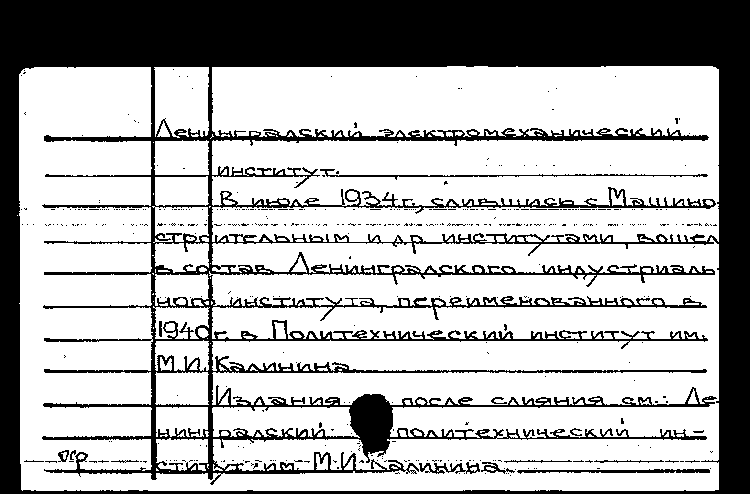 Ленинградский электромеханический
институт.
В июле 1934г., слившись с Машино
строительным и др. институтами, вошел
в состав Ленинградского индустриаль-
ного института, переименованного в
1940г. в Политехнический институт им.
М.И. Калинина.
Издания после слияния см.: Ле-
нинградский политехнический ин-
ститут им. М.И. Калинина.